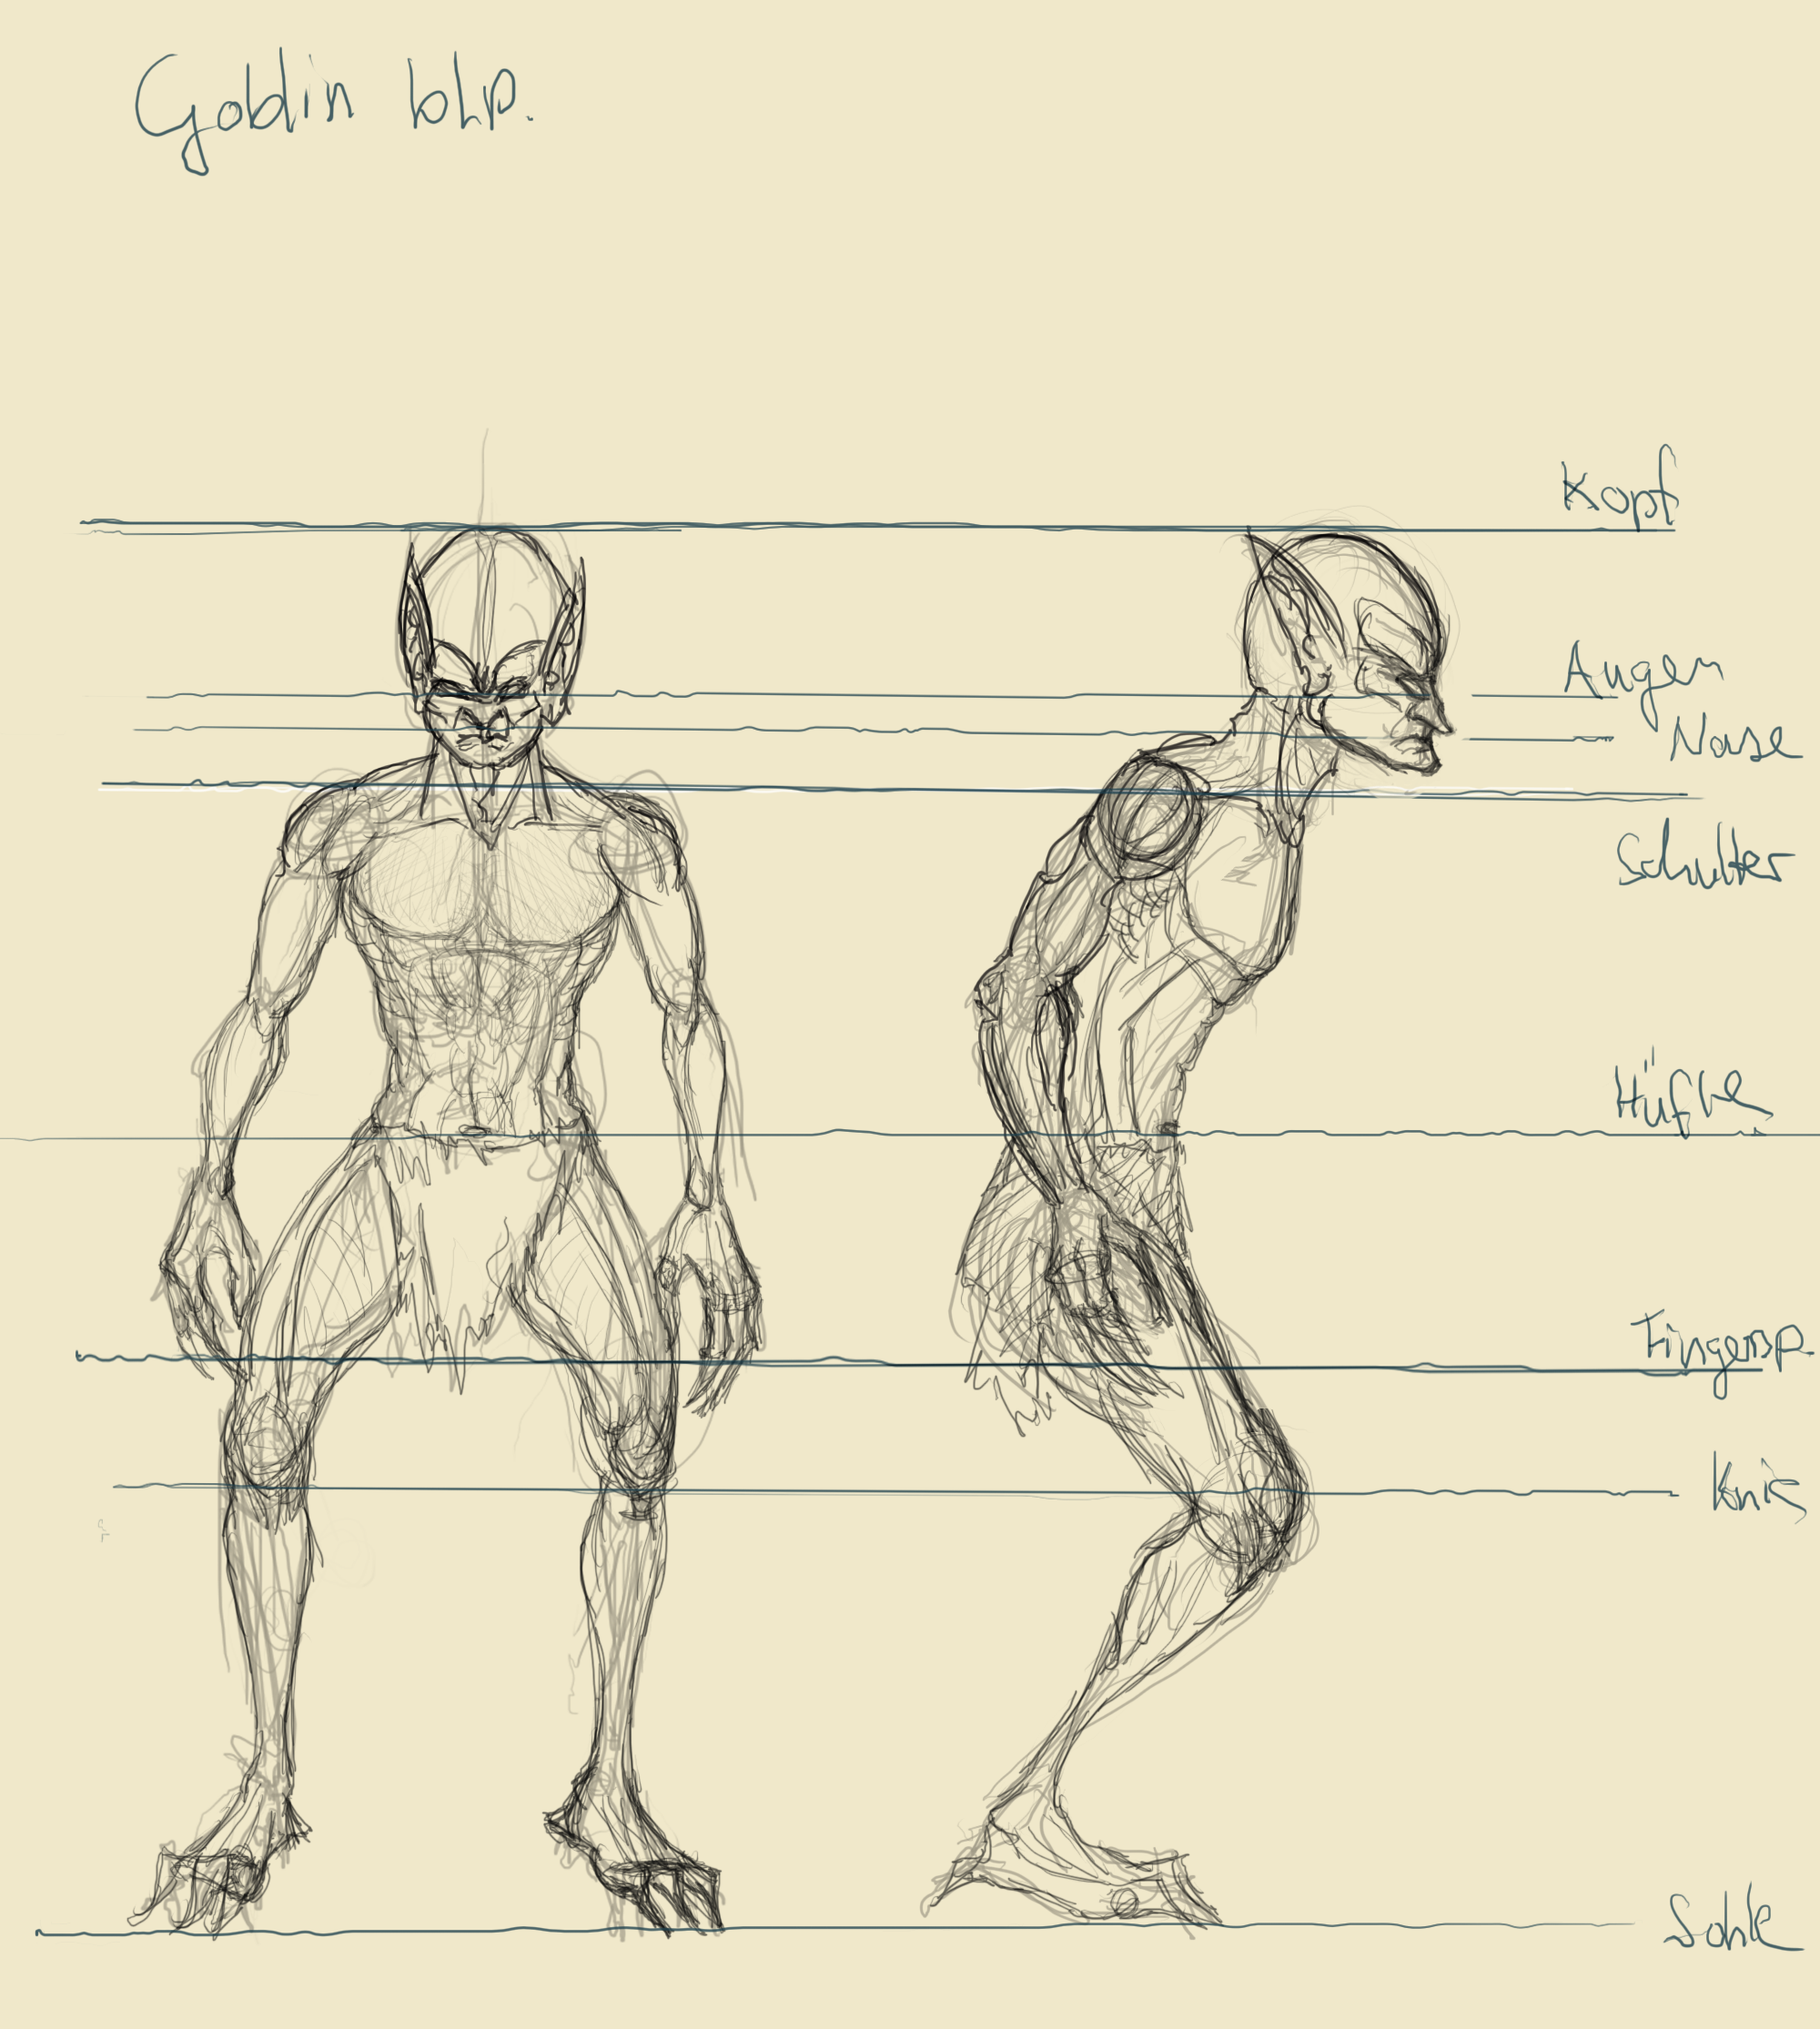 Goblin blp.
Kopf
Augen
Nase
Schulter
Hüfte
Fingersp.
Knie
Sohle